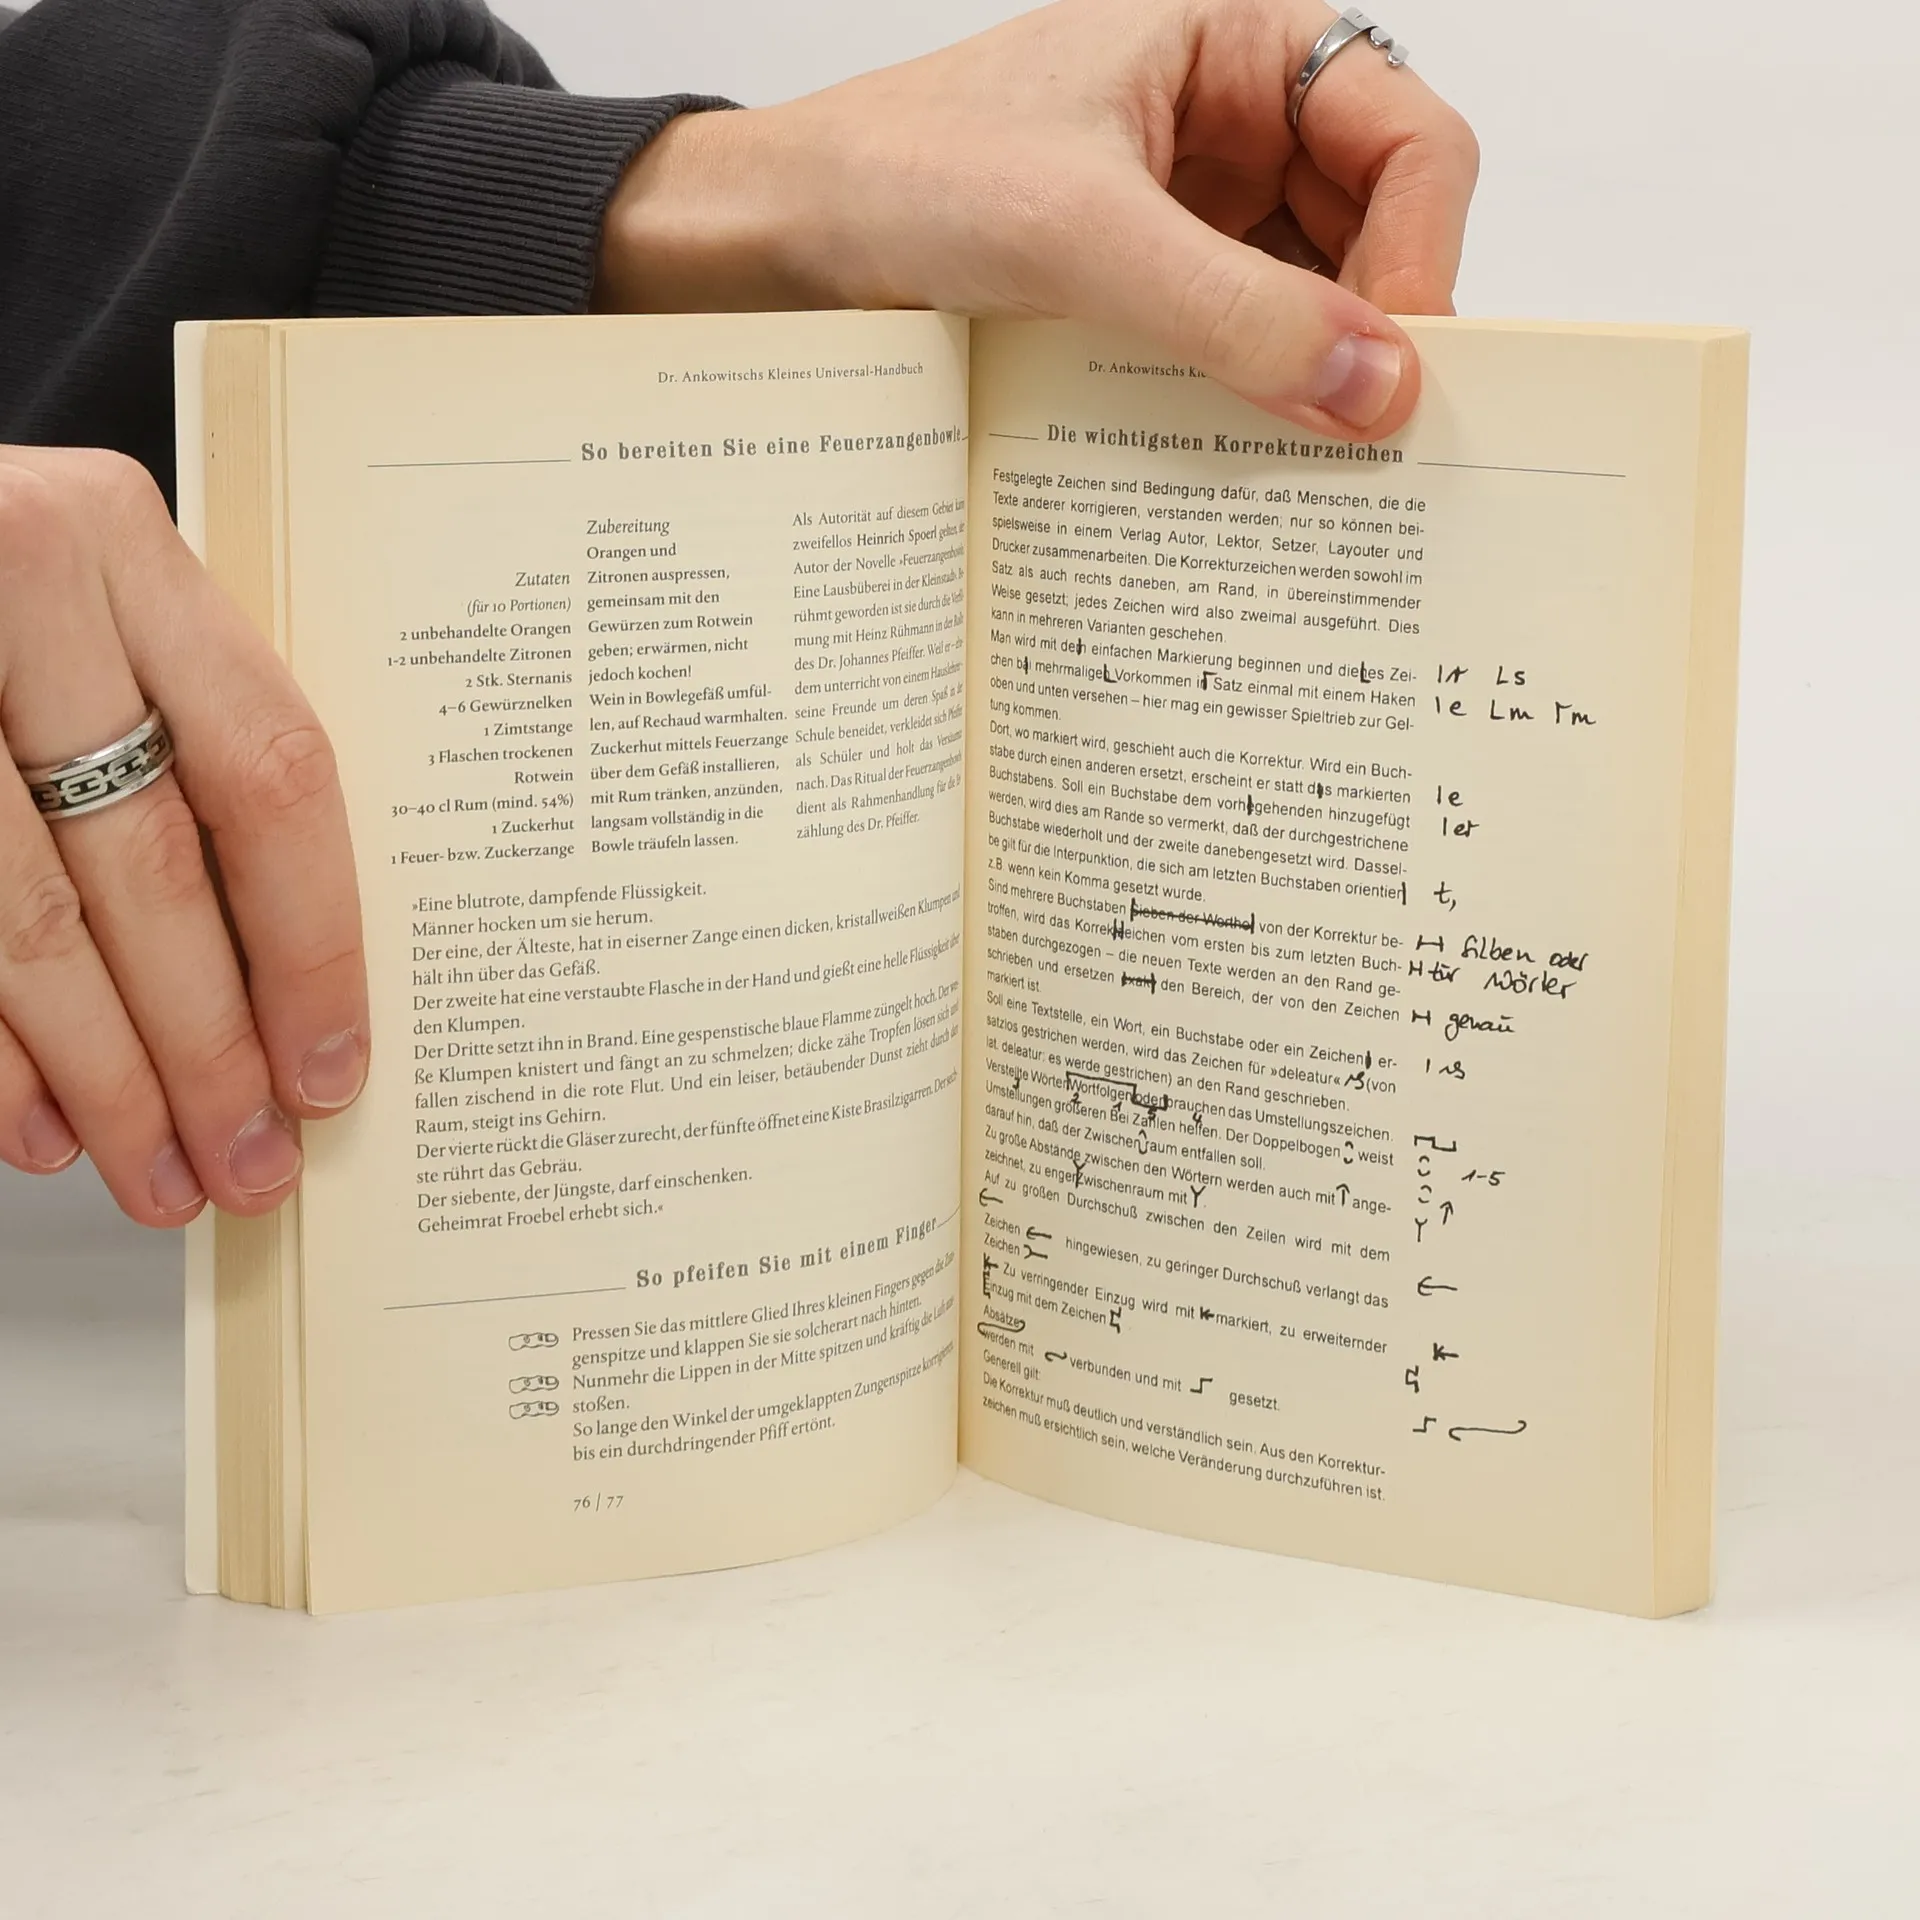 Dr. Ankowitschs Kleines Universal-Handbuch
So bereiten Sie eine Feuerzangenbowle
Zutaten
(für 10 Portionen)
2 unbehandelte Orangen
1-2 unbehandelte Zitronen
2 Stk. Sternanis
4–6 Gewürznelken
1 Zimtstange
3 Flaschen trockenen
Rotwein
30–40 cl Rum (mind. 54%)
1 Zuckerhut
1 Feuer- bzw. Zuckerzange
Zubereitung
Orangen und
Zitronen auspressen,
gemeinsam mit den
Gewürzen zum Rotwein
geben; erwärmen, nicht
jedoch kochen!
Wein in Bowlegefäß umfül-
len, auf Rechaud warmhalten.
Zuckerhut mittels Feuerzange
über dem Gefäß installieren,
mit Rum tränken, anzünden,
langsam vollständig in die
Bowle träufeln lassen.
Als Autorität auf diesem Gebiet kann
zweifellos Heinrich Spoerl gelten, der
Autor der Novelle »Feuerzangenbowle
Eine Lausbüberei in der Kleinstadt«. Be-
rühmt geworden ist sie durch die Verfil-
mung mit Heinz Rühmann in der Rolle
des Dr. Johannes Pfeiffer. Weil er –
dem unterricht von einem Hauslehrer –
seine Freunde um deren Spaß in der
Schule beneidet, verkleidet sich Pfeiffer
als Schüler und holt das Versäumte
nach. Das Ritual der Feuerzangenbowle
dient als Rahmenhandlung für die Er-
zählung des Dr. Pfeiffer.
»Eine blutrote, dampfende Flüssigkeit.
Männer hocken um sie herum.
Der eine, der Älteste, hat in eiserner Zange einen dicken, kristallweißen Klumpen und
hält ihn über das Gefäß.
Der zweite hat eine verstaubte Flasche in der Hand und gießt eine helle Flüssigkeit über
den Klumpen.
Der Dritte setzt ihn in Brand. Eine gespenstische blaue Flamme züngelt hoch. Der wei-
ße Klumpen knistert und fängt an zu schmelzen; dicke zähe Tropfen lösen sich und
fallen zischend in die rote Flut. Und ein leiser, betäubender Dunst zieht durch den
Raum, steigt ins Gehirn.
Der vierte rückt die Gläser zurecht, der fünfte öffnet eine Kiste Brasilzigarren. Der sech-
ste rührt das Gebräu.
Der siebente, der Jüngste, darf einschenken.
Geheimrat Froebel erhebt sich.«
So pfeifen Sie mit einem Finger
Pressen Sie das mittlere Glied Ihres kleinen Fingers gegen die Zun-
genspitze und klappen Sie sie solcherart nach hinten.
Nunmehr die Lippen in der Mitte spitzen und kräftig die Luft aus-
stoßen.
So lange den Winkel der umgeklappten Zungenspitze korrigieren,
bis ein durchdringender Pfiff ertönt.
76 / 77
Dr. Ankowitschs
Die wichtigsten Korrekturzeichen
Festgelegte Zeichen sind Bedingung dafür, daß Menschen, die die
Texte anderer korrigieren, verstanden werden; nur so können bei-
spielsweise in einem Verlag Autor, Lektor, Setzer, Layouter und
Drucker zusammenarbeiten. Die Korrekturzeichen werden sowohl im
Satz als auch rechts daneben, am Rand, in übereinstimmender
Weise gesetzt; jedes Zeichen wird also zweimal ausgeführt. Dies
kann in mehreren Varianten geschehen.
Man wird mit der einfachen Markierung beginnen und dieses Zei- s
chen bei mehrmaligem Vorkommen im Satz einmal mit einem Haken e m m
oben und unten versehen – hier mag ein gewisser Spieltrieb zur Gel-
tung kommen.
Dort, wo markiert wird, geschieht auch die Korrektur. Wird ein Buch-
stabe durch einen anderen ersetzt, erscheint er statt des markierten e
Buchstabens. Soll ein Buchstabe dem vorhgehenden hinzugefügt er
werden, wird dies am Rande so vermerkt, daß der durchgestrichene
Buchstabe wiederholt und der zweite danebengesetzt wird. Dassel-
be gilt für die Interpunktion, die sich am letzten Buchstaben orientiert t,
z.B. wenn kein Komma gesetzt wurde.
Sind mehrere Buchstaben von der Korrektur be- Silben oder
troffen, wird das Korrek eichen vom ersten bis zum letzten Buch- tur Wörter
staben durchgezogen – die neuen Texte werden an den Rand ge-
schrieben und ersetzen exakt den Bereich, der von den Zeichen genau
markiert ist.
Soll eine Textstelle, ein Wort, ein Buchstabe oder ein Zeichen er-
satzlos gestrichen werden, wird das Zeichen für »deleatur« (von
lat. deleatur: es werde gestrichen) an den Rand geschrieben.
Verstellte Wörter Wortfolgen oder brauchen das Umstellungszeichen.
3 2 1 5 4
Umstellungen größeren Bei Zahlen helfen. Der Doppelbogen weist 1-5
darauf hin, daß der Zwischen raum entfallen soll.
Zu große Abstände zwischen den Wörtern werden auch mit ange-
zeichnet, zu enger Zwischenraum mit .
Auf zu großen Durchschuß zwischen den Zeilen wird mit dem
Zeichen hingewiesen, zu geringer Durchschuß verlangt das
Zeichen
Zu verringender Einzug wird mit markiert, zu erweiternder
Einzug mit dem Zeichen
Absätze
werden mit verbunden und mit gesetzt.
Generell gilt:
Die Korrektur muß deutlich und verständlich sein. Aus den Korrektur-
zeichen muß ersichtlich sein, welche Veränderung durchzuführen ist.